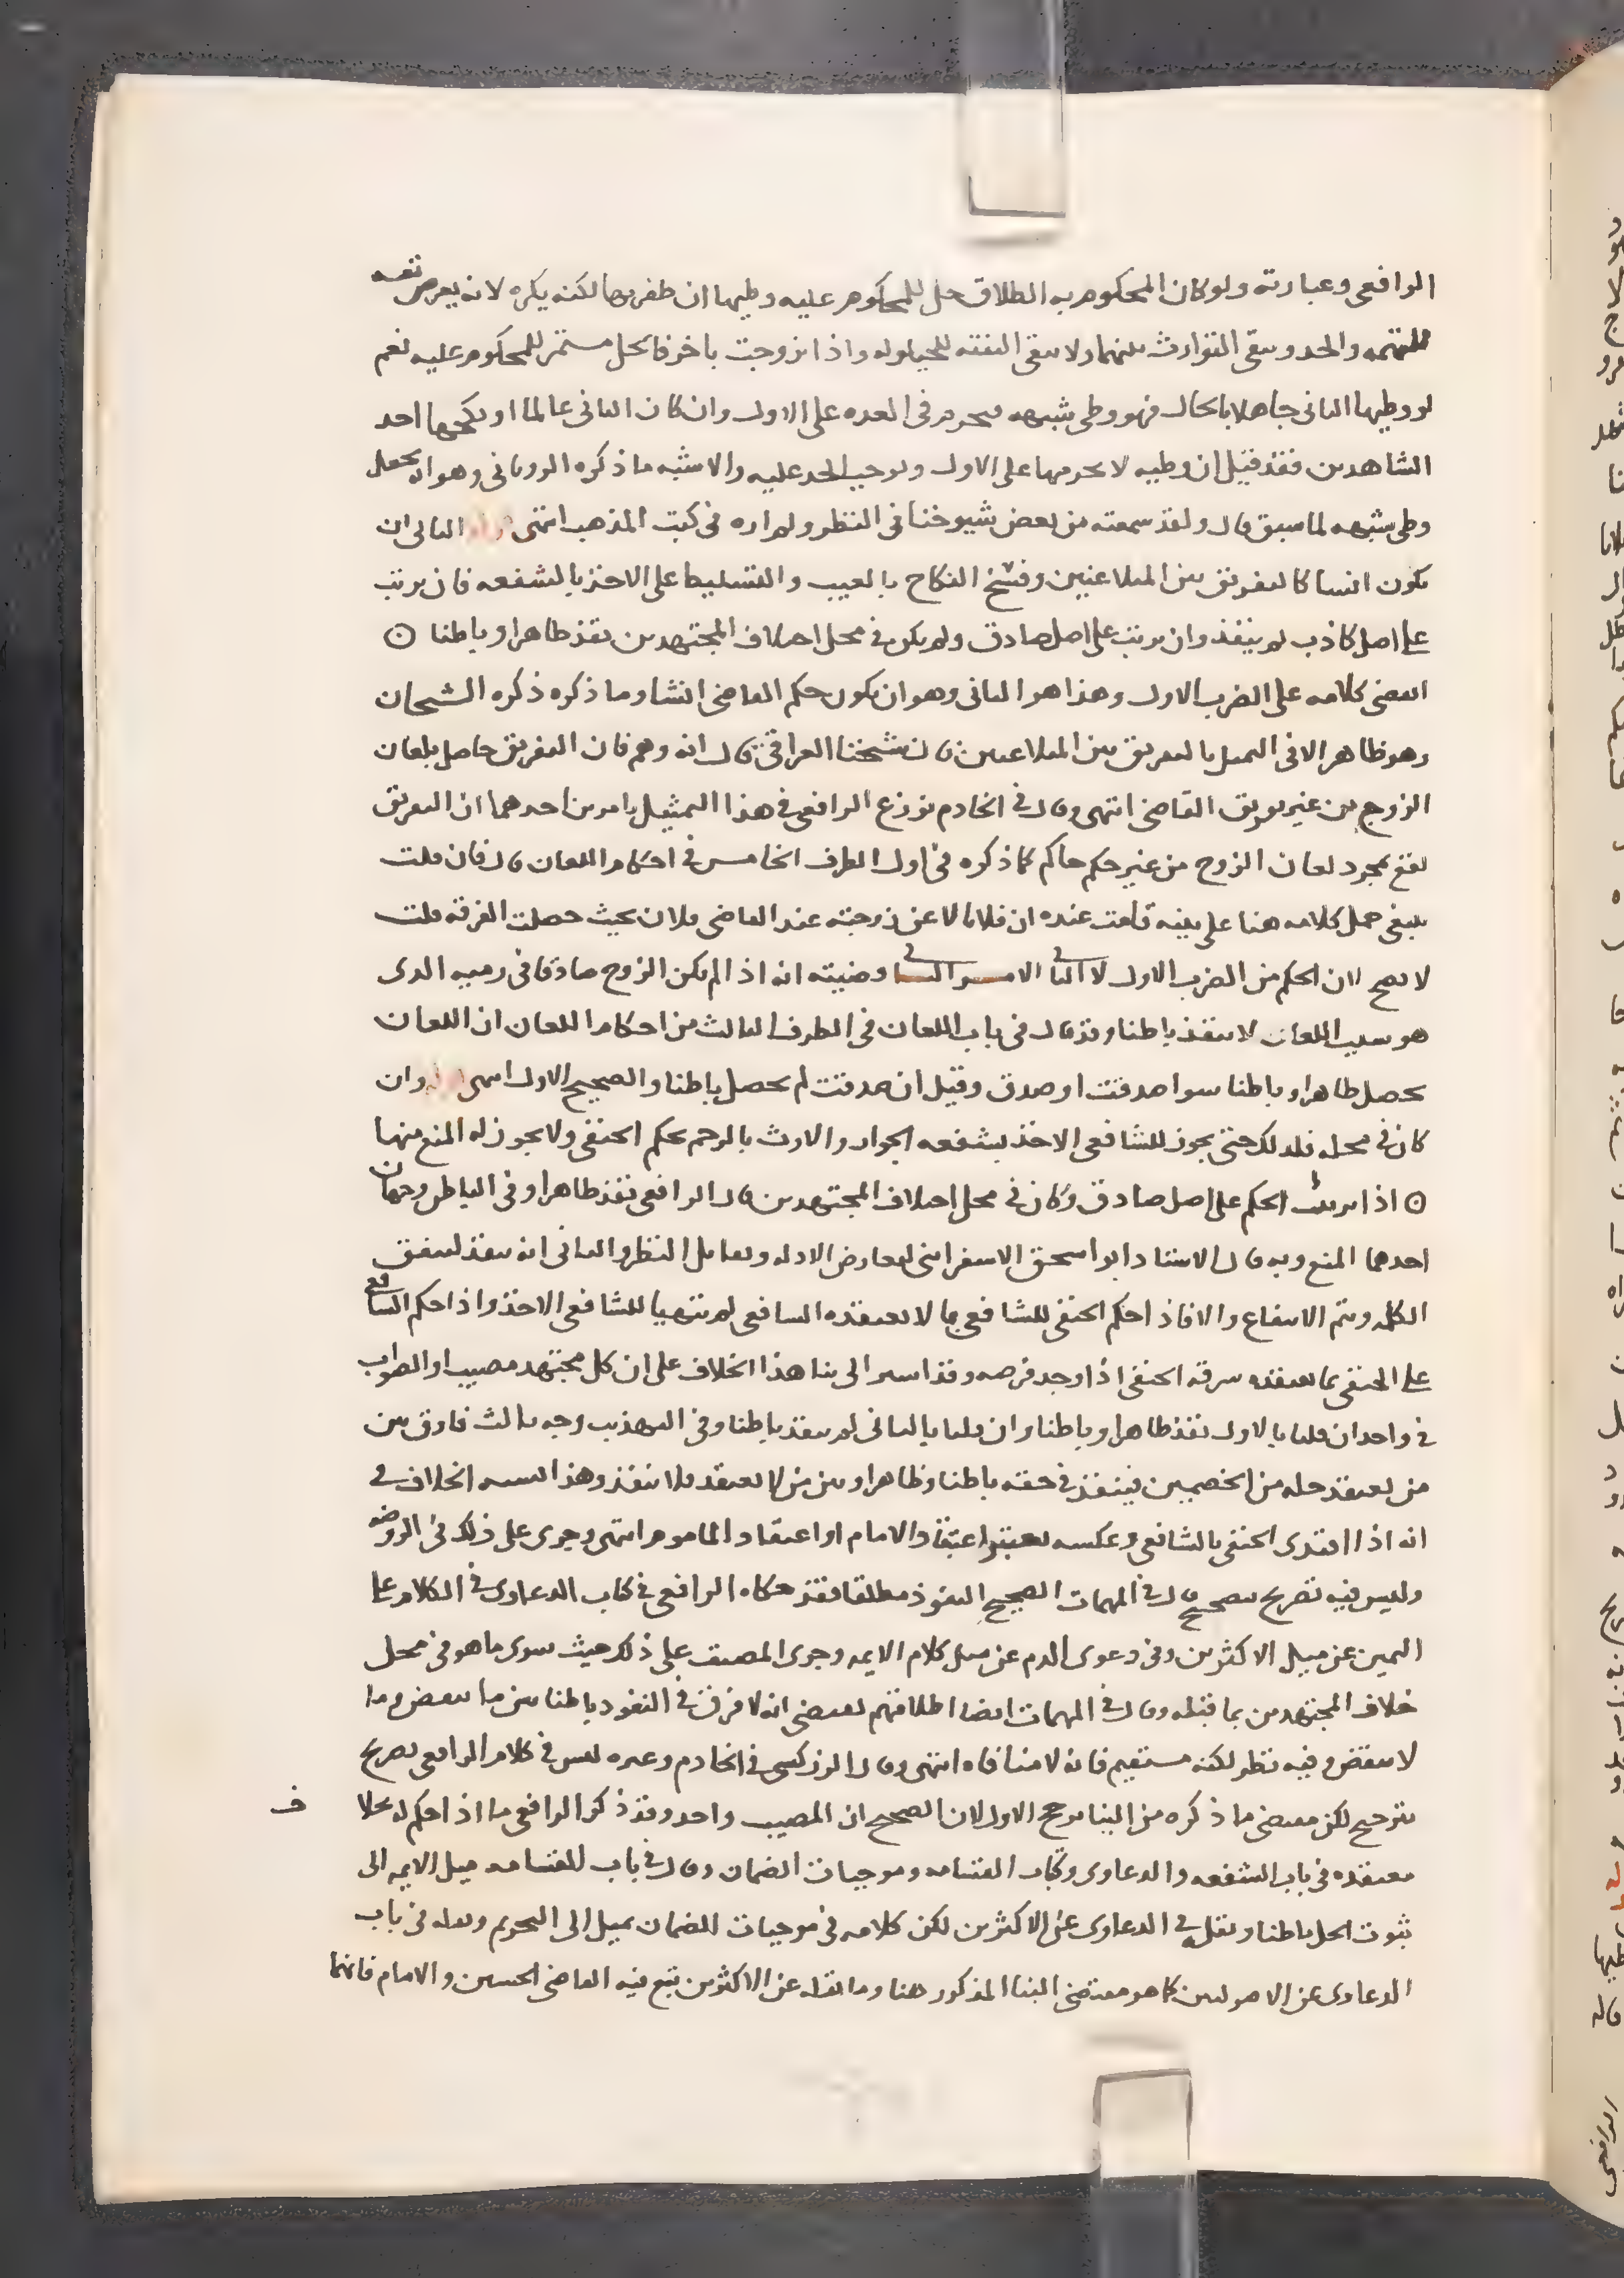 الرافعي وعبارته ولو كان المحكوم به الطلاق حل للمحكوم عليه وطيها ان ظفر بها لكنه يكره لانه يعرض نفسه
للتهمه والحد ويبقى التوارث بينهما ولا تبقى النفقه للحيلوله واذا تزوجت باخر فالحل مستمر للمحكوم عليه نعم
لو وطيها الثاني جاهلا بالحال فهو وطي شبهه فيحرم في العده على الاول وان كان الثاني عالما او نكحها احد
الشاهدين فقد قيل ان وطيه لا يحرمها على الاول ويوجب الحد عليه والاشبه ما ذكره الروياني وهو انه يجعل
وطي شبهه لما سبق قال ولقد سمعته من بعض شيوخنا في النظر ولم اره في كتب المذهب انتهى الثاني ان
يكون انشا كالتفريق بين المتلاعنين وفسخ النكاح بالعيب والتسليط على الاخذ بالشفعه فان ترتب
على اصل كاذب لم ينفذ وان ترتب على اصل صادق ولم يكن في محل اختلاف المجتهدين نفذ ظاهرا وباطنا ⊙
انقضى كلامه على الضرب الاول وهذا هو الثاني وهو ان يكون حكم القاضي انشا وما ذكره ذكره الشيخان
وهو ظاهر الا في التمثيل بالتفريق بين المتلاعنين فان شيخنا العراقي قال انه وهم فان التفريق حاصل بلعان
الزوج من غير تفريق القاضي انتهى وقال في الخادم نوزع الرافعي في هذا التمثيل بامرين احدهما ان التفريق
يقع بمجرد لعان الزوج من غير حكم حاكم كما ذكره في اول الطرف الخامس في احكام اللعان قال فان قلت
ينبغي حمل كلامه هنا على بينه قامت عنده ان فلانا لاعن زوجته عند القاضي فلان بحيث حصلت الفرقه قلت
لا يصح لان الحكم من الضرب الاول لا الثاني الامر الثاني وقضيته انه اذا لم يكن الزوج صادقا في رميه الذي
هو سبب اللعان لا ينفذ باطنا وقد قال في باب اللعان في الطرف الثالث من احكام اللعان ان اللعان
يحصل ظاهرا وباطنا سوا صدقت او صدق وقيل ان صدقت لم يحصل باطنا والصحيح الاول انتهى وان
كان في محله فلذلك حتى يجوز للشافعي الاخذ بشفعه الجوار والارث بالرحم بحكم الحنفي ولا يجوز له المنع منها
⊙ اذا ترتب الحكم على اصل صادق وكان في محل اختلاف المجتهدين قال الرافعي نفذ ظاهرا وفي الباطن وجهان
احدهما المنع وبه قال الاستاد ابو اسحق الاسفرايني لتعارض الادله وتقابل النظر والثاني انه ينفذ لتتفق
الكلمه ويتم الانتفاع والا فاذا حكم الحنفي للشافعي بما لا يعتقده الشافعي لم يتهيا للشافعي الاخذ واذا حكم الشافعي
على الحنفي بما يعتقده سرقه الحنفي اذا وجد فرصه وقد اشير الى بنا هذا الخلاف على ان كل مجتهد مصيب او الصواب
في واحد ان قلنا بالاول نفذ ظاهرا وباطنا وان قلنا بالثاني لم ينفذ باطنا وفي التهذيب وجه ثالث فارق بين
من يعتقد حله من الخصمين فينفذ في حقه باطنا وظاهرا وبين من لا يعتقد فلا ينفذ وهذا يشبه الخلاف في
انه اذا اقتدى الحنفي بالشافعي وعكسه يعتبر اعتقاد الامام او اعتقاد الماموم انتهى وجرى على ذلك في الروضه
وليس فيه تصريح بتصحيح قال في المهمات الصحيح النفوذ مطلقا فقد حكاه الرافعي في كتاب الدعاوى في الكلام على
اليمين عن ميل الاكثرين وفي دعوى الدم عن ميل كلام الايمه وجرى المصنف على ذلك حيث سوى ما هو في محل
خلاف المجتهدين بما قبله وقال في المهمات ايضا اطلاقهم يقتضي انه لا فرق في النفوذ باطنا بين ما ينقض وما
لا ينقض وفيه نظر لكنه مستقيم فانه لا منافاه انتهى وقال الزركشي في الخادم وغيره ليس في كلام الرافعي تصريح
بترجيح لكن مقتضى ما ذكره من البنا ترجيح الاول لان الصحيح ان المصيب واحد وقد ذكر الرافعي ما اذا حكم له بخلاف
معتقده في باب الشفعه والدعاوى وكتاب القسامه وموجبات الضمان وقال في باب القسامه ميل الايمه الى
ثبوت الحل باطنا ونقله في الدعاوى عن الاكثرين لكن كلامه في موجبات الضمان يميل الى التحريم ونقله في باب
الدعاوى عن الاصوليين كما هو مقتضى البنا المذكور هنا وما نقله عن الاكثرين تبع فيه القاضي الحسين والامام فانهما